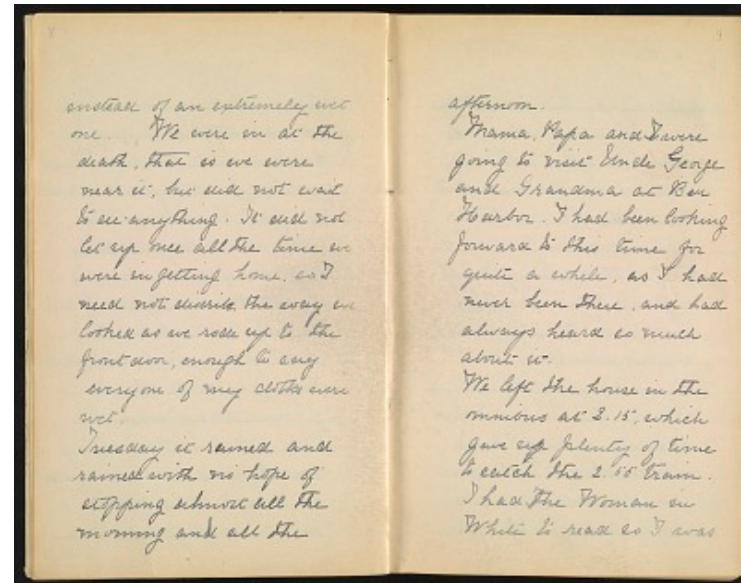 8
instead of an extremely wet
one. We were in at the
death, that is we were
near it, but did not wait
to see anything. It did not
let up once all the time we
were in getting home, so I
need not describe the way we
looked as we rode up to the
front door, enough to say
everyone of my clothes were
wet.
Tuesday it rained and
rained with no hope of
stopping almost all the
morning and all the
9
afternoon.
Mama, Papa and I were
going to visit Uncle George
and Grandma at Bar
Harbor. I had been looking
forward to this time for
quite a while, as I had
never been there, and had
always heard so much
about it.
We left the house in the
omnibus at 2.15, which
gave up plenty of time
to catch the 2.55 train.
I had the Woman in
White to read so I was